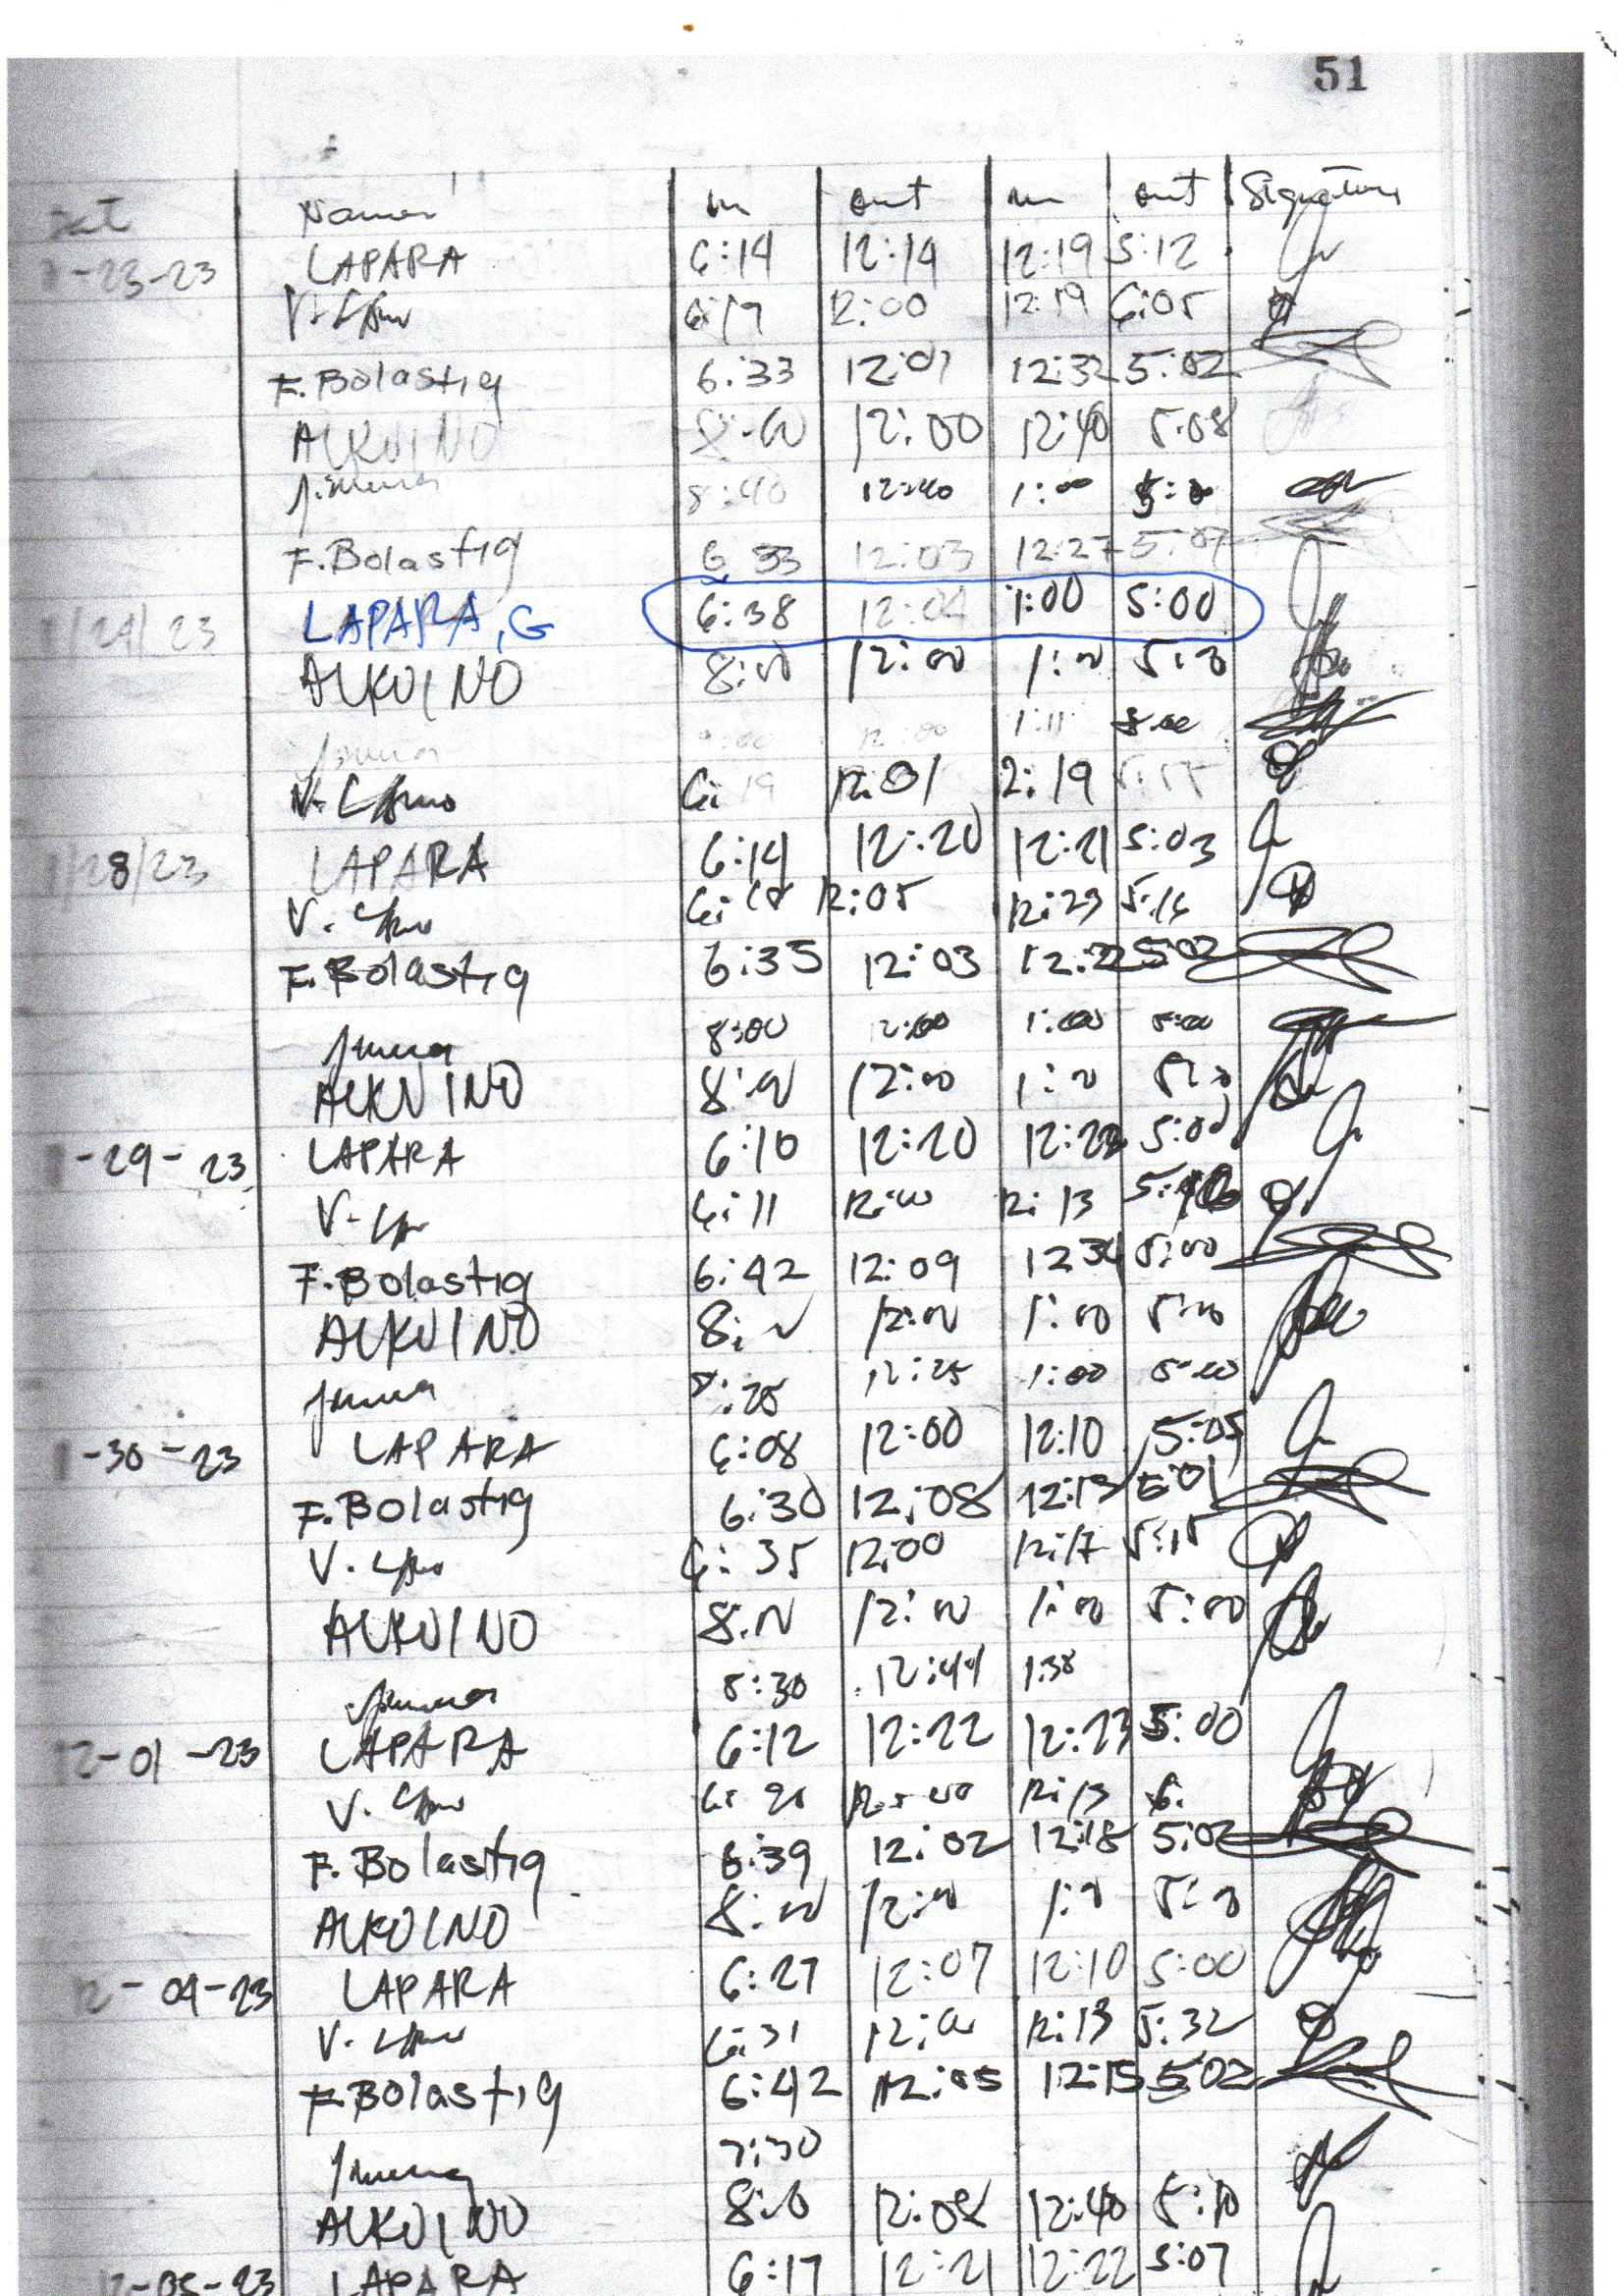 51
Names In Out In Out Signature
1-23-23 LAPARA 6:14 12:14 12:19 5:12
V. 6:19 12:00 12:19 6:05
F. Bolastig 6:33 12:01 12:32 5:02
ALKUINO 8:00 12:00 12:40 5:08
8:40 12:40 1:00
F. Bolastig 6:33 12:03 12:27 5:07
1/24/23 LAPARA, G 6:38 12:04 1:00 5:00
ALKUINO 8:00 12:00 1:00 5:00
12:00 1:11 5:00
V. 6:19 12:01 2:19
1/28/23 LAPARA 6:14 12:20 12:21 5:03
V. 12:05 12:23 5:16
F. Bolastig 6:35 12:03 12:22 5:02
8:00 12:00 1:00 5:00
ALKUINO 8:00 12:00 1:00 5:00
1-29-23 LAPARA 6:10 12:20 12:22 5:00
V. 6:11 12:00 12:13
F. Bolastig 6:42 12:09 12 34 5:00
ALKUINO 8:00 12:00 1:00 5:00
12:25 1:00 5:00
1-30-23 LAPARA 6:08 12:00 12:10 5:05
F. Bolastig 6:30 12:08 12:13 5:01
V. 6:35 12:00 12:17 5:15
ALKUINO 8:00 12:00 1:00 5:00
8:30 12:44 1:38
12-01-23 LAPARA 6:12 12:22 12:23 5:00
V. 12:00 12:13
F. Bolastig 6:39 12:02 12:18 5:02
ALKUINO 8:00 12:00 1:00 5:00
12-04-23 LAPARA 6:27 12:07 12:10 5:00
V. 6:31 12:00 12:13 5:32
F. Bolastig 6:42 12:05 12:15 5:02
7:30
ALKUINO 8:00 12:08 12:40 5:10
12-05-23 LAPARA 6:17 12:21 12:22 5:07